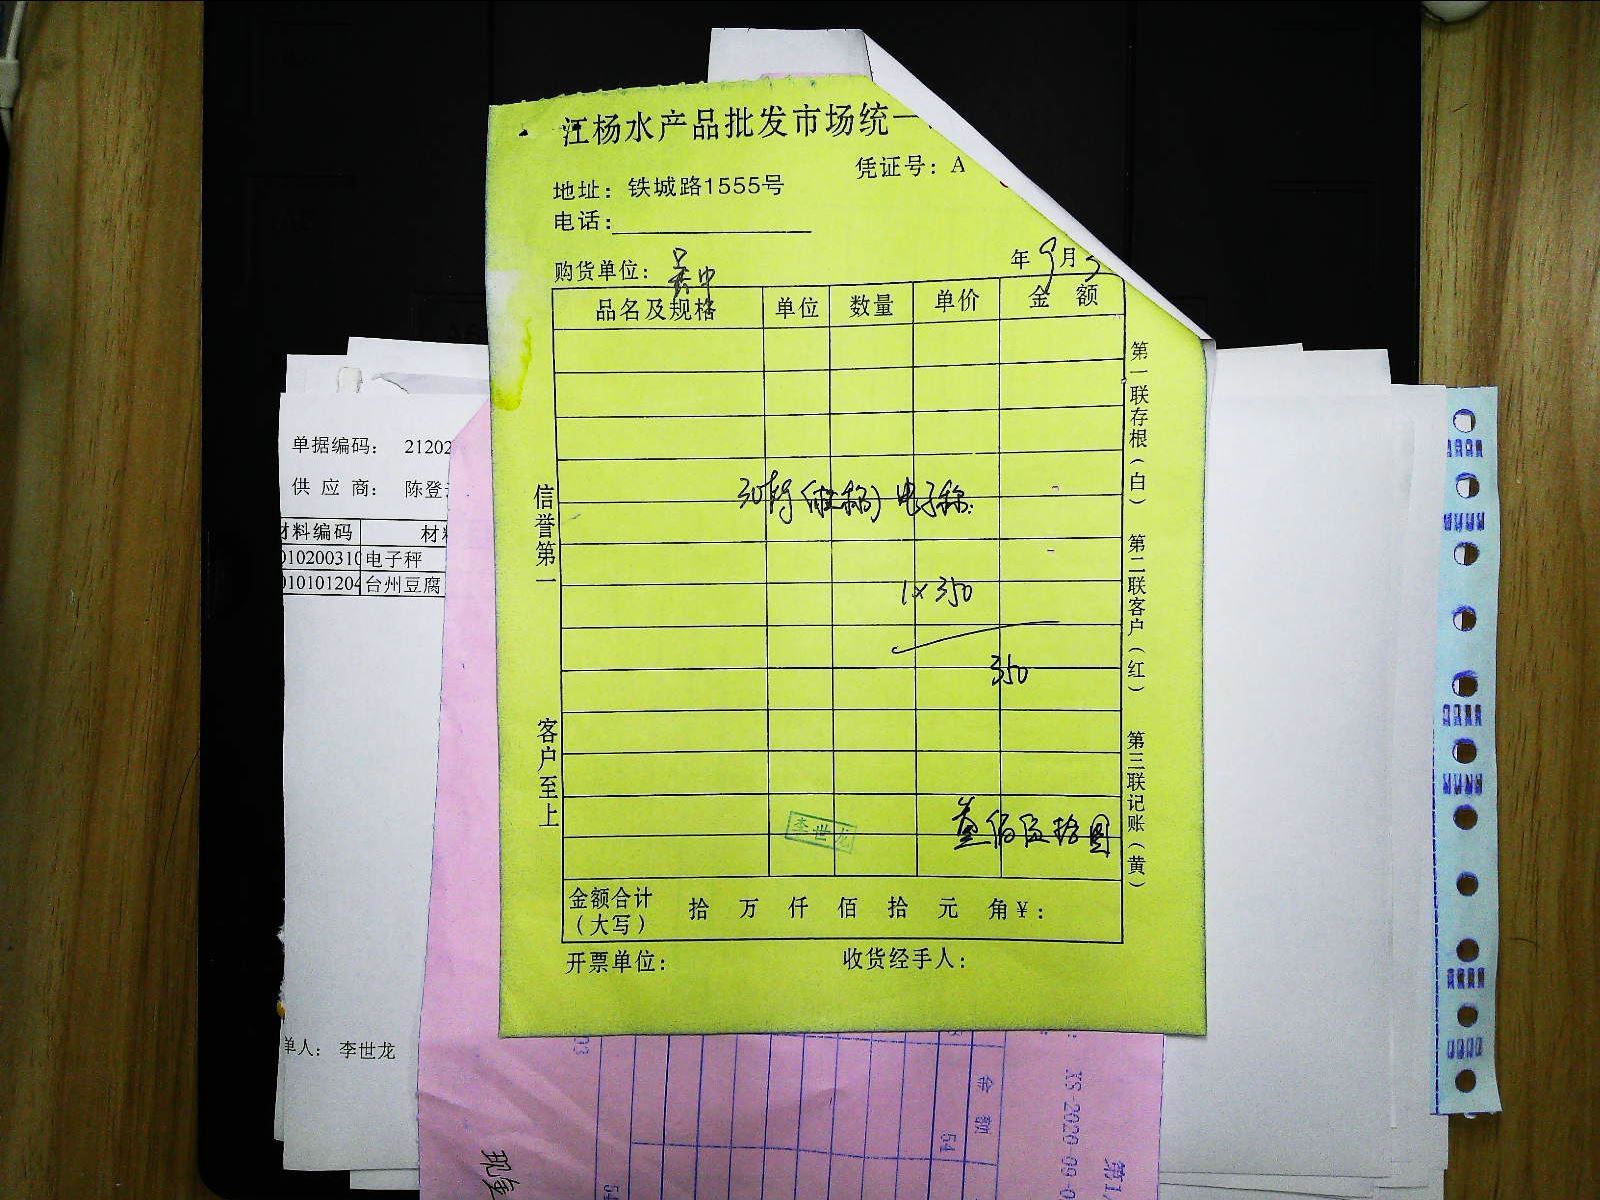 江杨水产品批发市场统一
凭证号：A
地址：铁城路1555号
电话：
购货单位：
年9月
品名及规格 单位 数量 单价 金 额
电子称
1×350
350
叁佰伍拾圆
李世龙
金额合计（大写） 拾 万 仟 佰 拾 元 角￥：
开票单位： 收货经手人：
信誉第一
客户至上
第一联存根（白）
第二联客户（红）
第三联记账（黄）
单据编码： 21202
供 应 商： 陈登
材料编码
010200310 电子秤
010101204 台州豆腐
单人： 李世龙
金 额
54
KS-2020-09-0
现金